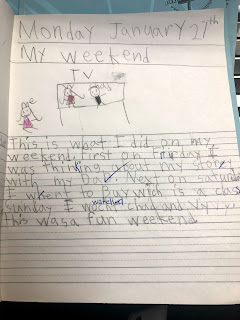 Monday January 27th
My weekend
TV
me
This is what I did on my
weekend. First on Friday I
was thinking out my story
with my Dad. Next on saturda
I went to Bay wich is a clas
sunday I watched chad and Vy
this was a fun weekend